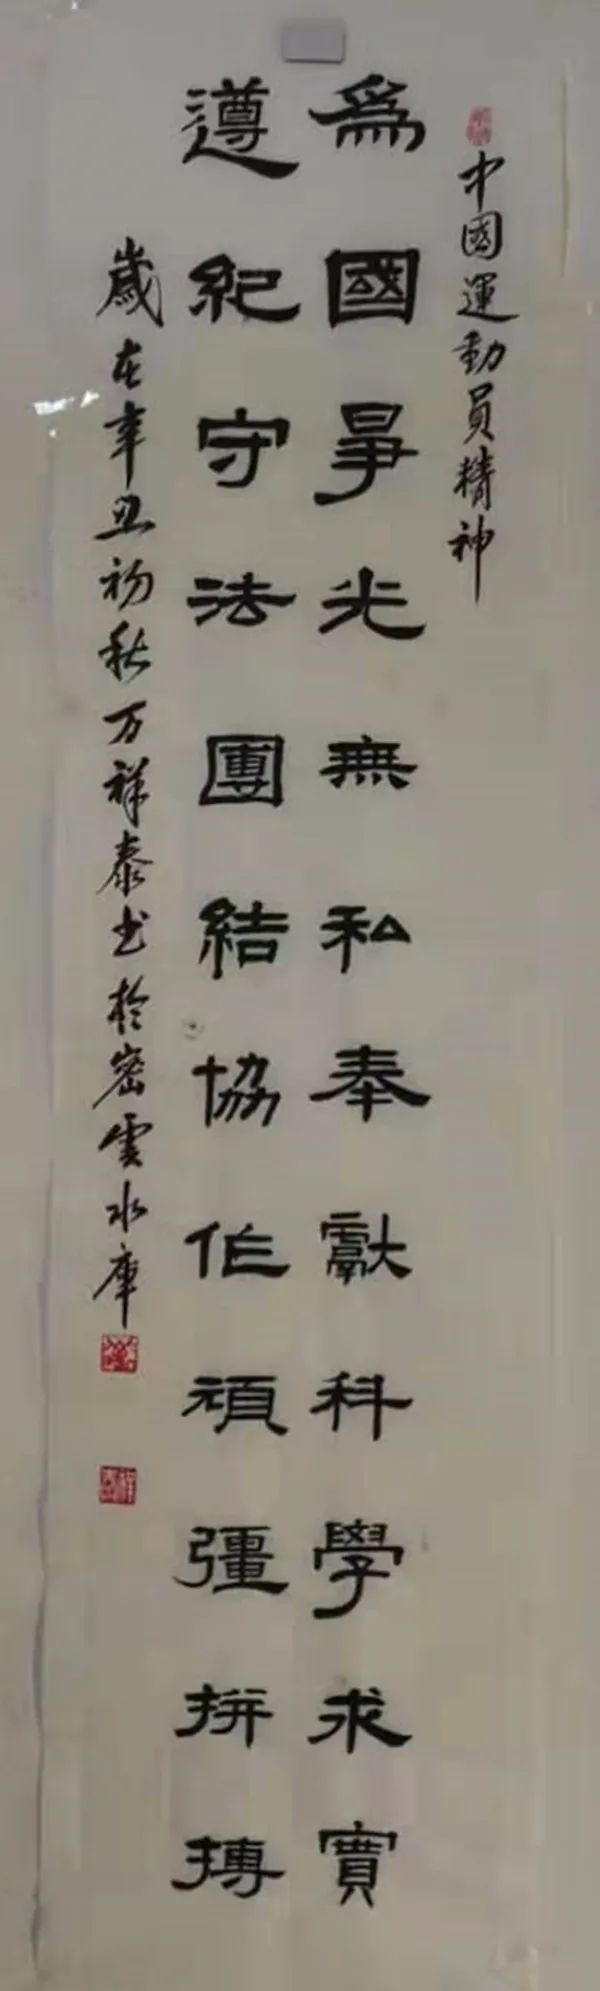 中國運動員精神
為國爭光無私奉獻科學求實
遵紀守法團結協作頑彊拼搏
歲在辛丑初秋万祥泰书於密雲水库